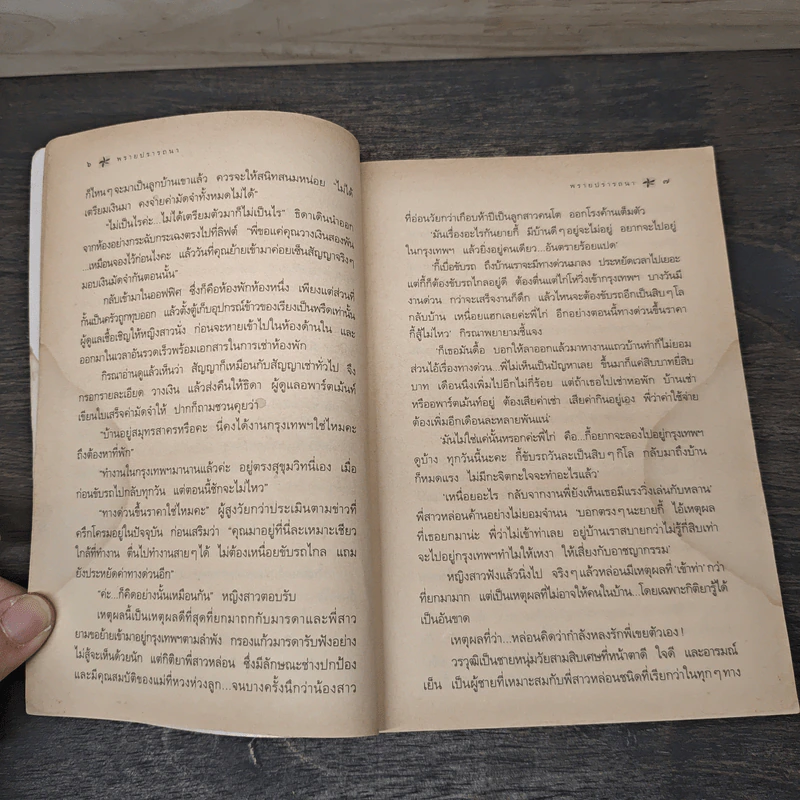 ๖ พรายปรารถนา
ก็ไหนๆ จะมาเป็นลูกบ้านเขาแล้ว ควรจะให้สนิทสนมหน่อย “ไม่ได้
เตรียมเงินมา คงจ่ายค่ามัดจำทั้งหมดไม่ได้”
“ไม่เป็นไรค่ะ...ไม่ได้เตรียมตัวมาก็ไม่เป็นไร” ธิดาเดินนำออก
จากห้องอย่างกระฉับกระเฉงตรงไปที่ลิฟต์ “พี่ขอแค่คุณวางเงินสองพัน
...เหมือนจองไว้ก่อนไงคะ แล้ววันที่คุณย้ายเข้ามาค่อยเซ็นสัญญาจริงๆ
มอบเงินมัดจำกันตอนนั้น”
กลับเข้ามาในออฟฟิศ ซึ่งก็คือห้องพักห้องหนึ่ง เพียงแต่ส่วนที่
กั้นเป็นครัวถูกทุบออก แล้วตั้งตู้เก็บอุปกรณ์ข้าวของเรียงเป็นพรืดเท่านั้น
ผู้ดูแลเชื้อเชิญให้หญิงสาวนั่ง ก่อนจะหายเข้าไปในห้องด้านใน และ
ออกมาในเวลาอันรวดเร็วพร้อมเอกสารในการเช่าห้องพัก
กิรณาอ่านดูแล้วเห็นว่า สัญญาก็เหมือนกับสัญญาเช่าทั่วไป จึง
กรอกรายละเอียด วางเงิน แล้วส่งคืนให้ธิดา ผู้ดูแลอพาร์ตเม้นท์
เขียนใบเสร็จค่ามัดจำให้ ปากก็ถามชวนคุยว่า
“บ้านอยู่สมุทรสาครหรือคะ นี่คงได้งานกรุงเทพฯใช่ไหมคะ
ถึงต้องหาที่พัก”
“ทำงานในกรุงเทพฯมานานแล้วค่ะ อยู่ตรงสุขุมวิทนี่เอง เมื่อ
ก่อนขับรถไปกลับทุกวัน แต่ตอนนี้ชักจะไม่ไหว”
“ทางด่วนขึ้นราคาใช่ไหมคะ” ผู้สูงวัยกว่าประเมินตามข่าวที่
ครึกโครมอยู่ในปัจจุบัน ก่อนเสริมว่า “คุณมาอยู่ที่นี่ละเหมาะเชียว
ใกล้ที่ทำงาน ตื่นไปทำงานสายๆ ได้ ไม่ต้องเหนื่อยขับรถไกล แถม
ยังประหยัดค่าทางด่วนอีก”
“ค่ะ...ก็คิดอย่างนั้นเหมือนกัน” หญิงสาวตอบรับ
เหตุผลนี้เป็นเหตุผลดีที่สุดที่ยกมาถกกับมารดาและพี่สาว
ยามขอย้ายเข้ามาอยู่กรุงเทพฯตามลำพัง กรองแก้วมารดารับฟังอย่าง
ไม่สู้จะเห็นด้วยนัก แต่กิติยาพี่สาวหล่อน ซึ่งมีลักษณะช่างปกป้อง
และมีคุณสมบัติของแม่ที่หวงห่วงลูก...จนบางครั้งนึกว่าน้องสาว
พรายปรารถนา ๗
ที่อ่อนวัยกว่าเกือบห้าปีเป็นลูกสาวคนโต ออกโรงค้านเต็มตัว
‘มันเรื่องอะไรกันยายกี้ มีบ้านดีๆ อยู่จะไม่อยู่ อยากจะไปอยู่
ในกรุงเทพฯ แล้วยิ่งอยู่คนเดียว...อันตรายร้อยแปด’
‘กี้เบื่อขับรถ ถึงบ้านเราจะมีทางด่วนมาลง ประหยัดเวลาไปเยอะ
แต่กี้ก็ต้องขับรถไกลอยู่ดี ต้องตื่นแต่ไก่โห่วิ่งเข้ากรุงเทพฯ บางวันมี
งานด่วน กว่าจะเสร็จงานก็ดึก แล้วไหนจะต้องขับรถอีกเป็นสิบๆ โล
กลับบ้าน เหนื่อยแฮกเลยค่ะพี่ไก่ อีกอย่างตอนนี้ทางด่วนขึ้นราคา
กี้สู้ไม่ไหว’ กิรณาพยายามชี้แจง
‘ก็เธอมันดื้อ บอกให้ลาออกแล้วมาหางานแถวบ้านทำก็ไม่ยอม
ส่วนไอ้เรื่องทางด่วน...พี่ไม่เห็นเป็นปัญหาเลย ขึ้นมาก็แค่สิบบาทยี่สิบ
บาท เดือนนึงเพิ่มไปอีกไม่กี่ร้อย แต่ถ้าเธอไปเช่าหอพัก บ้านเช่า
หรืออพาร์ตเม้นท์อยู่ ต้องเสียค่าเช่า เสียค่ากินอยู่เอง พี่ว่าค่าใช้จ่าย
ต้องเพิ่มอีกเดือนละหลายพันแน่’
‘มันไม่ใช่แค่นั้นหรอกค่ะพี่ไก่ คือ...กี้อยากจะลองไปอยู่กรุงเทพฯ
ดูบ้าง ทุกวันนี้นะคะ กี้ขับรถวันละเป็นสิบๆ กิโล กลับมาถึงบ้าน
ก็หมดแรง ไม่มีกะจิตกะใจจะทำอะไรแล้ว’
‘เหนื่อยอะไร กลับจากงานพี่ยังเห็นเธอมีแรงวิ่งเล่นกับหลาน’
พี่สาวหล่อนค้านอย่างไม่ยอมจำนน ‘บอกตรงๆ นะยายกี้ ไอ้เหตุผล
ที่เธอยกมาน่ะ พี่ว่าไม่เข้าท่าเลย อยู่บ้านเราสบายกว่าไม่รู้กี่สิบเท่า
จะไปอยู่กรุงเทพฯทำไมให้เหงา ให้เสี่ยงกับอาชญากรรม’
หญิงสาวฟังแล้วนิ่งไป จริงๆ แล้วหล่อนมีเหตุผลที่ ‘เข้าท่า’ กว่า
ที่ยกมามาก แต่เป็นเหตุผลที่ไม่อาจให้คนในบ้าน...โดยเฉพาะกิติยารู้ได้
เป็นอันขาด
เหตุผลที่ว่า...หล่อนคิดว่ากำลังหลงรักพี่เขยตัวเอง!
วรวุฒิเป็นชายหนุ่มวัยสามสิบเศษที่หน้าตาดี ใจดี และอารมณ์
เย็น เป็นผู้ชายที่เหมาะสมกับพี่สาวหล่อนชนิดที่เรียกว่าในทุกๆ ทาง